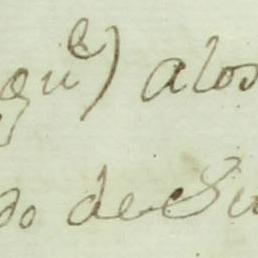 qu^e) alos
do de Su